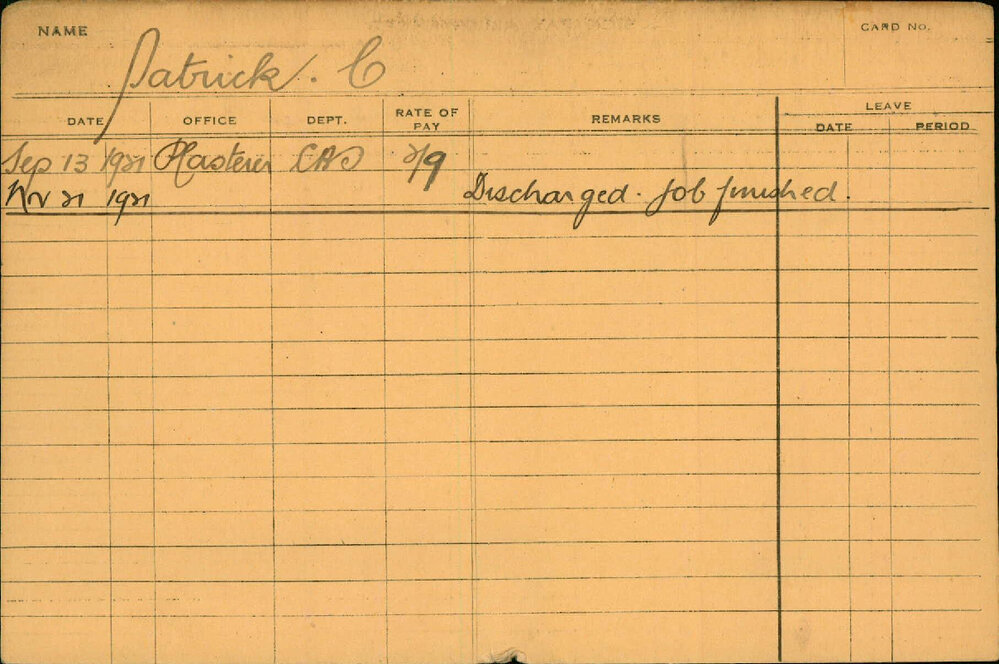 NAME
CARD NO.
Patrick. C
DATE OFFICE DEPT. RATE OF PAY REMARKS LEAVE
DATE PERIOD
Sep 13 1921 Plasterer 2/9
Nov 21 1921 Discharged. Job finished.